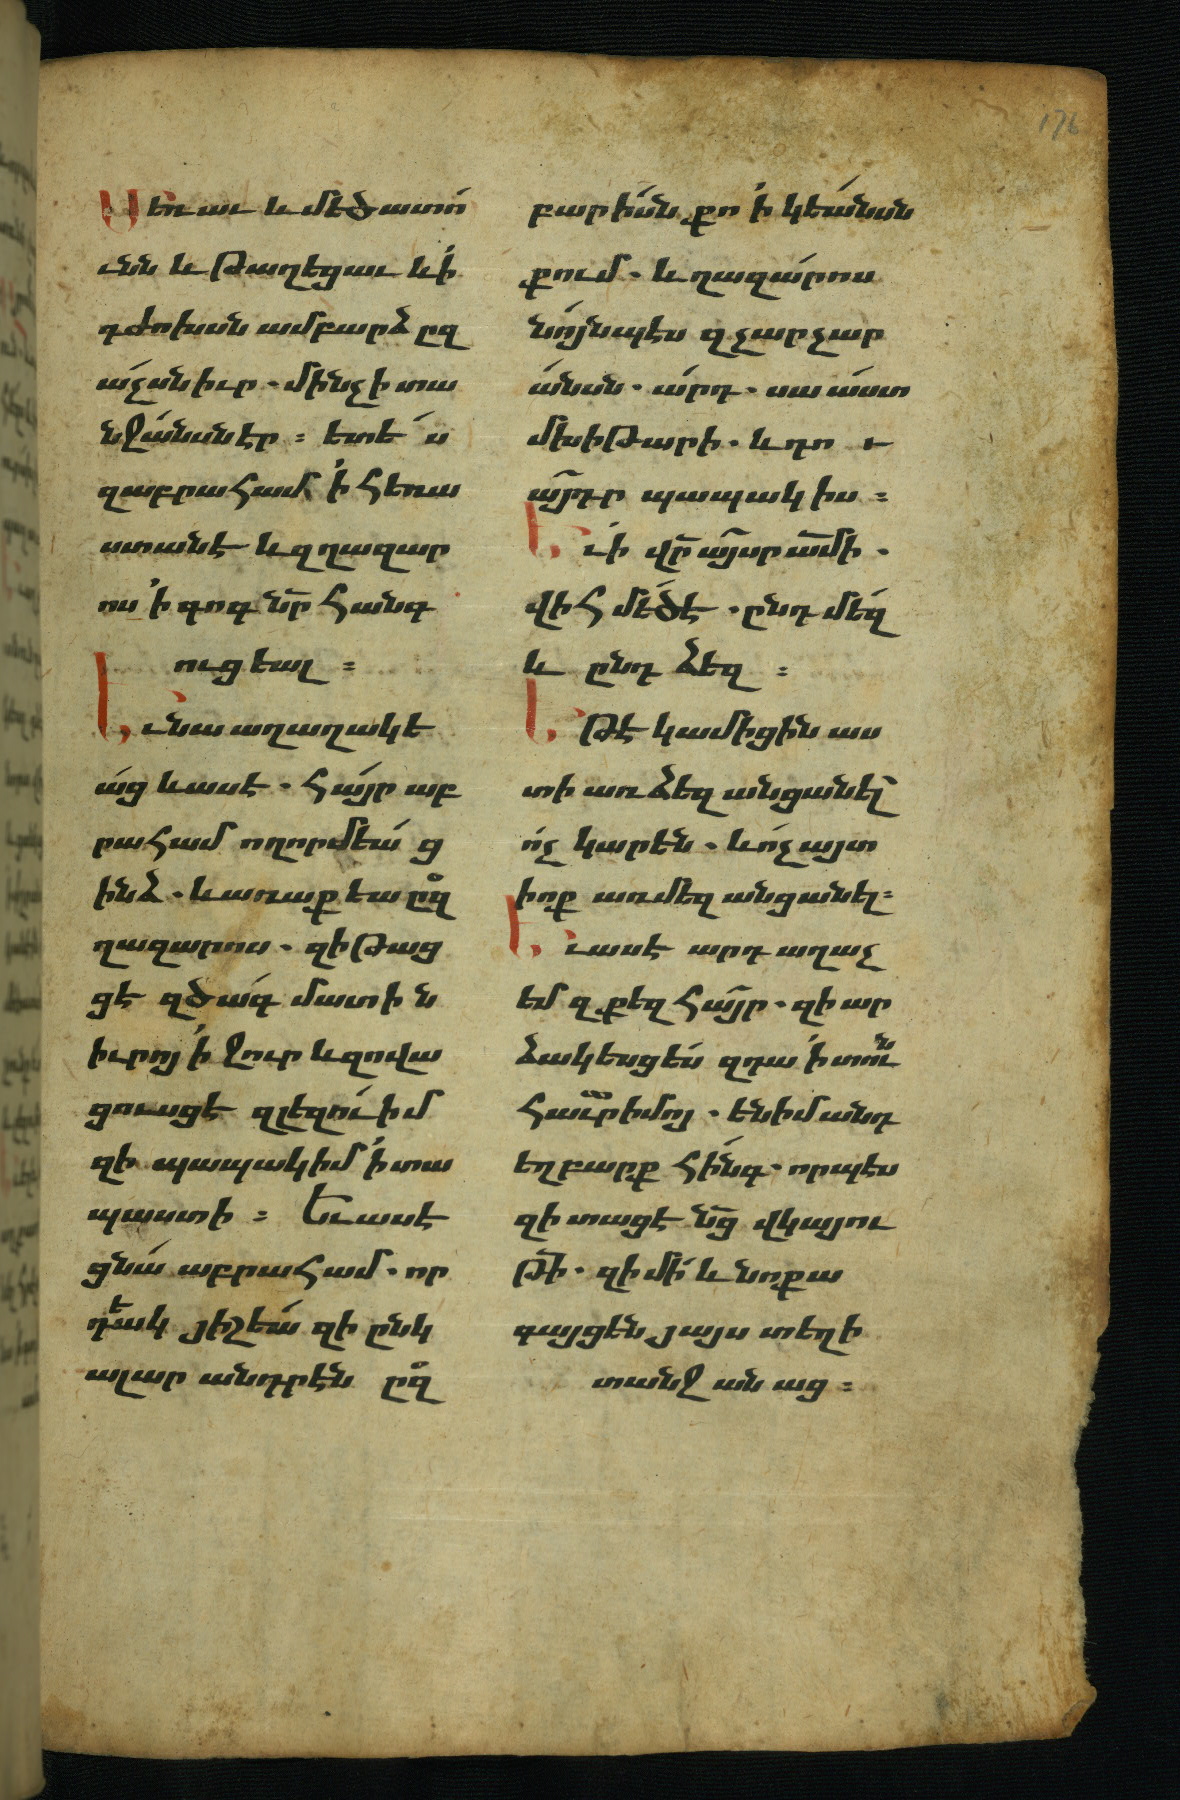 176
Մեռաւ և մեծատո՛
ւնն և թաղեցաւ և ՛ի
դժոխսն ամբարձ ըզ
ա՛չսն իւր . մինչ ի տա
նջա՛նսն էր : ետե՛ս
զաբրահամ ՛ի հեռա
ստանէ և զղազար
ոս ՛ի գոգ նր̃ հանգ
ուցեալ :
Եւ նա աղաղակե
ա՛ց և ասէ . հա՛յր աբ
րահամ ողորմեա՛ ց
ինձ . և առաքեա ըզ
ղազարոս . զի թաց
ցէ զծա՛գ մատին
իւրոյ ՛ի ջուր և զովա
ցուսցէ զլեզու՛ իմ
զի պապակիմ ՛ի տա
պաստի : Եւ ասէ
ցնա՛ աբրահամ . որ
դեակ յիշեա՛ զի ընկ
ալար անդրէն ըզ
բարի՛սն քո ՛ի կեա՛նսն
քում . և ղազա՛րոս
նո՛յնպէս զչարչար
ա՛նսն . ա՛րդ . սա ա՛ստ
մխիթարի . և դո ւ
ա՛յդր պապակիս :
Եւ ՛ի վր̃ ա՛յսր ամ̃ի .
վիհ մե՛ծ է . ընդ մեզ
և ընդ ձեզ :
Եթէ կամիցին աս
տի առ ձեզ անցանել՛
ո՛չ կարեն . և ո՛չ այտ
ի ոք առ մեզ անցանել :
Եւ ասէ արդ աղաչ
եմ զքեզ հա՛յր . զի ար
ձակեսցես զդա ՛ի տուն
հաւր իմոյ . են իմ անդ
եղբարք հի՛նգ . որպէս
զի տացէ նց̃ վկայու
թի̃ . զի մի՛ և նոքա
գայցեն յայս տեղի
տանջանաց :